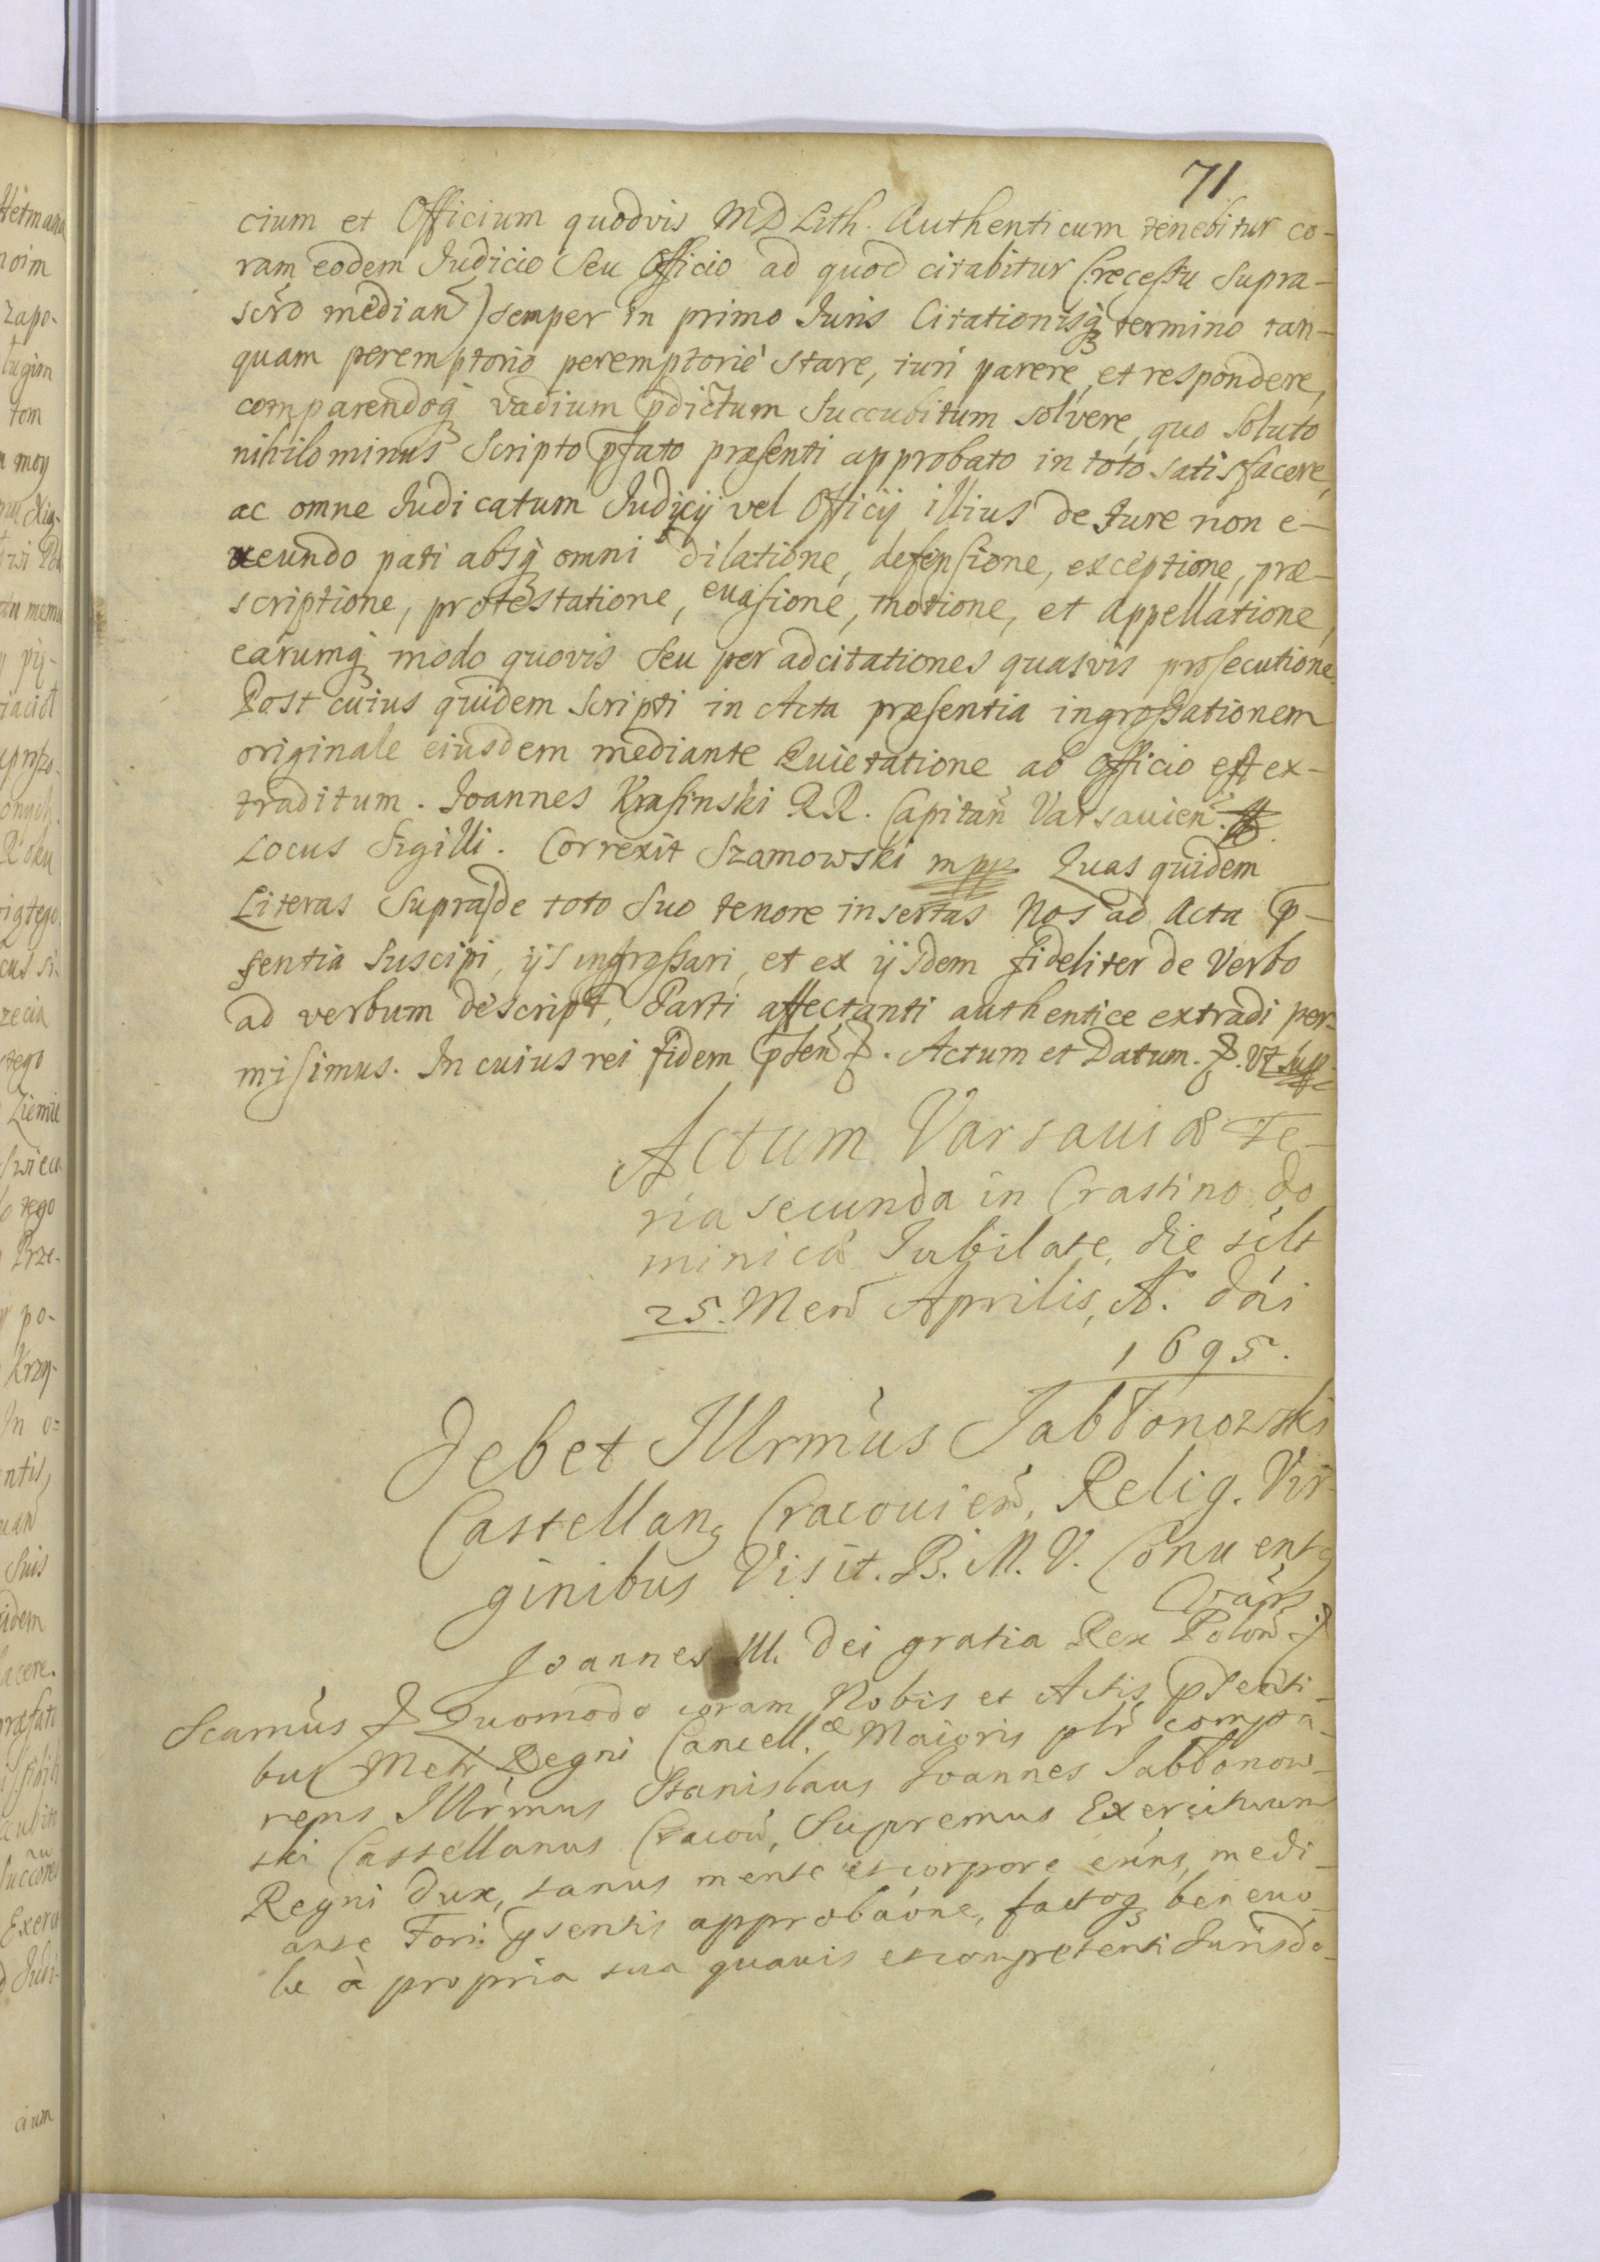 71
cium et Officium quodvis MD Lith. Authenticum tenebitur co-
ram eodem Judicio Seu Officio ad quod citabitur (recessu Supra-
scr̃o median̄) semper in primo Juris Citationisq termino tan-
quam peremptorio peremptorie stare, iuri parere, et respondere,
comparendoq vadium pdictum Succubitum solvere, quo Soluto
nihilominus Scripto pfato præsenti approbato in toto satisfacere,
ac omne Judicatum Judicij vel Officij illius de Jure non e-
xeundo pati absq omni dilatione, defensione, exceptione, præ-
scriptione, protestatione, evasione, motione, et Appellatione,
earumq modo quovis Seu per adcitationes quasvis prosecutione.
Post cuius quidem Scripti in Acta præsentia ingrossationem
originale eiusdem mediante Quietatione ab Officio est ex-
traditum. Joannes Krasinski RR. Capitan̄ Varsavien̄.
Locus Sigilli. Correxit Szamowski mpp. Quas quidem
Literas Suprade toto Suo tenore insertas Nos ad Acta p-
sentia Suscipi, ijs ingrossari, et ex ijsdem fideliter de Verbo
ad verbum descript, Parti affectanti authentice extradi per-
misimus. In cuius rei fidem psen̄. Actum et Datum. Ut sup.
Actum Varsaviæ Fe-
ria secunda in Crastino Do
minicæ Jubilate, die scilt
25. Men̄ Aprilis, A. Dn̄i
1695.
Debet Illrm̄us Jabłonowski
Castellang Cracovien̄, Relig. Vir-
ginibus Visit. B. M. V. Conventg
Vars
Joannes III. Dei gratia Rex Polon̄.
Scam̄us Quomodo coram Nobis et Actis psenti-
bus Metr Regni Cancell.æ Maioris plr̄ compa-
rens Illrm̄us Stanislaus Joannes Jabłonow-
ski Castellanus Cracov̄, Supremus Exercituum
Regni Dux, sanus mente et corpore exn̄s, medi-
ante Fori psentis approbãone, factoq benevo-
le à propria sua quavis et competenti Jurisdi-